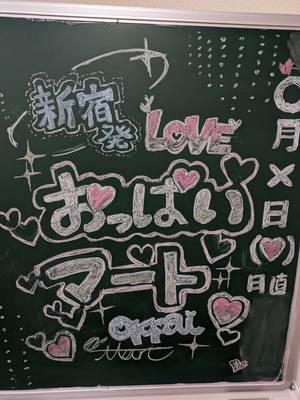 新宿発
LOVE
おっぱい
マート
oppai
Mart
〇月×日(♥)
日直